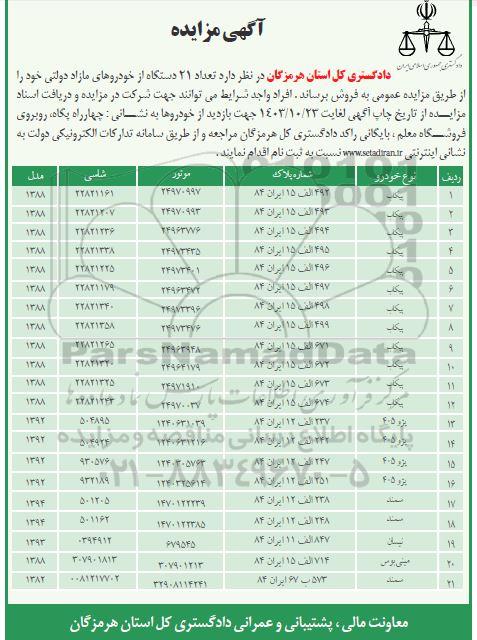 آگهی مزایده
دادگستری جمهوری اسلامی ایران
دادگستری کل استان هرمزگان در نظر دارد تعداد ۲۱ دستگاه از خودروهای مازاد دولتی خود را
از طریق مزایده عمومی به فروش برساند . افراد واجد شرایط می توانند جهت شرکت در مزایده و دریافت اسناد
مزایـــده از تاریخ چاپ آگهی لغایت ۱۴۰۳/۱۰/۲۳ جهت بازدید از خودروها به نشــانی : چهارراه پکاه، روبروی
فروشــگاه معلم ، بایگانی راکد دادگستری کل هرمزگان مراجعه و از طریق سامانه تدارکات الکترونیکی دولت به
نشانی اینترنتی www.setadiran.ir نسبت به ثبت نام اقدام نمایند .
ردیف نوع خودرو شماره پلاک موتور شاسی مدل
۱ پیکاپ ۴۹۲ الف ۱۵ ایران ۸۴ ۲۴۹۷۰۹۹۷ ۲۲۸۲۱۱۶۱ ۱۳۸۸
۲ پیکاپ ۴۹۳ الف ۱۵ ایران ۸۴ ۲۴۹۷۰۹۹۳ ۲۲۸۲۱۲۰۷ ۱۳۸۸
۳ پیکاپ ۴۹۴ الف ۱۵ ایران ۸۴ ۲۴۹۶۳۷۷۶ ۲۲۸۲۱۲۳۶ ۱۳۸۸
۴ پیکاپ ۴۹۵ الف ۱۵ ایران ۸۴ ۲۴۹۷۳۴۳۵ ۲۲۸۲۱۳۳۸ ۱۳۸۸
۵ پیکاپ ۴۹۶ الف ۱۵ ایران ۸۴ ۲۴۹۷۳۴۰۱ ۲۲۸۲۱۲۲۵ ۱۳۸۸
۶ پیکاپ ۴۹۷ الف ۱۵ ایران ۸۴ ۲۴۹۶۳۴۷۲ ۲۲۸۲۱۱۷۹ ۱۳۸۸
۷ پیکاپ ۴۹۸ الف ۱۵ ایران ۸۴ ۲۴۹۷۳۳۹۶ ۲۲۸۲۱۳۴۰ ۱۳۸۸
۸ پیکاپ ۴۹۹ الف ۱۵ ایران ۸۴ ۲۴۹۷۳۴۷۶ ۲۲۸۲۱۳۵۸ ۱۳۸۸
۹ پیکاپ ۶۷۱ الف ۱۵ ایران ۸۴ ۲۴۹۶۳۹۴۸ ۲۲۸۲۱۲۶۵ ۱۳۸۸
۱۰ پیکاپ ۶۷۲ الف ۱۵ ایران ۸۴ ۲۴۹۶۴۱۷۹ ۱۳۸۸
۱۱ پیکاپ ۶۷۳ الف ۱۵ ایران ۸۴ ۲۴۹۷۱۹۱۰ ۲۲۸۲۱۳۲۵ ۱۳۸۸
۱۲ پیکاپ ۶۷۴ الف ۱۵ ایران ۸۴ ۲۴۹۷۰۰۳۷ ۲۲۸۲۱۲۴۳ ۱۳۸۸
۱۳ پژو ۴۰۵ ۲۳۷ الف ۱۲ ایران ۸۴ ۱۲۴۰۶۳۱۰۳۹ ۵۰۴۸۹۵ ۱۳۹۲
۱۴ پژو ۴۰۵ ۲۴۲ الف ۱۲ ایران ۸۴ ۱۲۴۰۶۳۱۲۱۶ ۵۰۴۹۲۴ ۱۳۹۲
۱۵ پژو ۴۰۵ ۲۴۷ الف ۱۲ ایران ۸۴ ۱۲۴۰۳۰۵۷۶۳ ۹۳۰۵۷۶ ۱۳۹۲
۱۶ پژو ۴۰۵ ۲۵۱ الف ۱۲ ایران ۸۴ ۱۲۴۰۳۲۵۶۱۴ ۹۳۲۱۸۹ ۱۳۹۲
۱۷ سمند ۲۳۸ الف ۱۲ ایران ۸۴ ۱۴۷۰۱۲۲۲۳۹ ۵۰۱۲۰۵ ۱۳۹۴
۱۸ سمند ۲۴۸ الف ۱۲ ایران ۸۴ ۱۴۷۰۱۲۲۳۸۵ ۵۰۱۱۶۲ ۱۳۹۴
۱۹ نیسان ۸۴۷ الف ۱۱ ایران ۸۴ ۶۷۹۵۴۵ ۰۳۹۴۹۱۲ ۱۳۹۳
۲۰ مینی‌بوس ۷۱۴ الف ۱۵ ایران ۸۴ ۳۰۷۹۰۱۲۱۳ ۳۰۷۹۰۱۸۱۳ ۱۳۸۸
۲۱ سمند ۵۷۳ ب ۶۷ ایران ۸۴ ۳۲۹۰۸۱۱۴۲۴۱ ۰۰۸۱۲۱۷۷۰۲ ۱۳۸۲
ParsNamadData
پایگاه اطلاع رسانی مناقصه و مزایده
۰۲۱-۸۸۳۴۹۶۷۰-۵
معاونت مالی ، پشتیبانی و عمرانی دادگستری کل استان هرمزگان